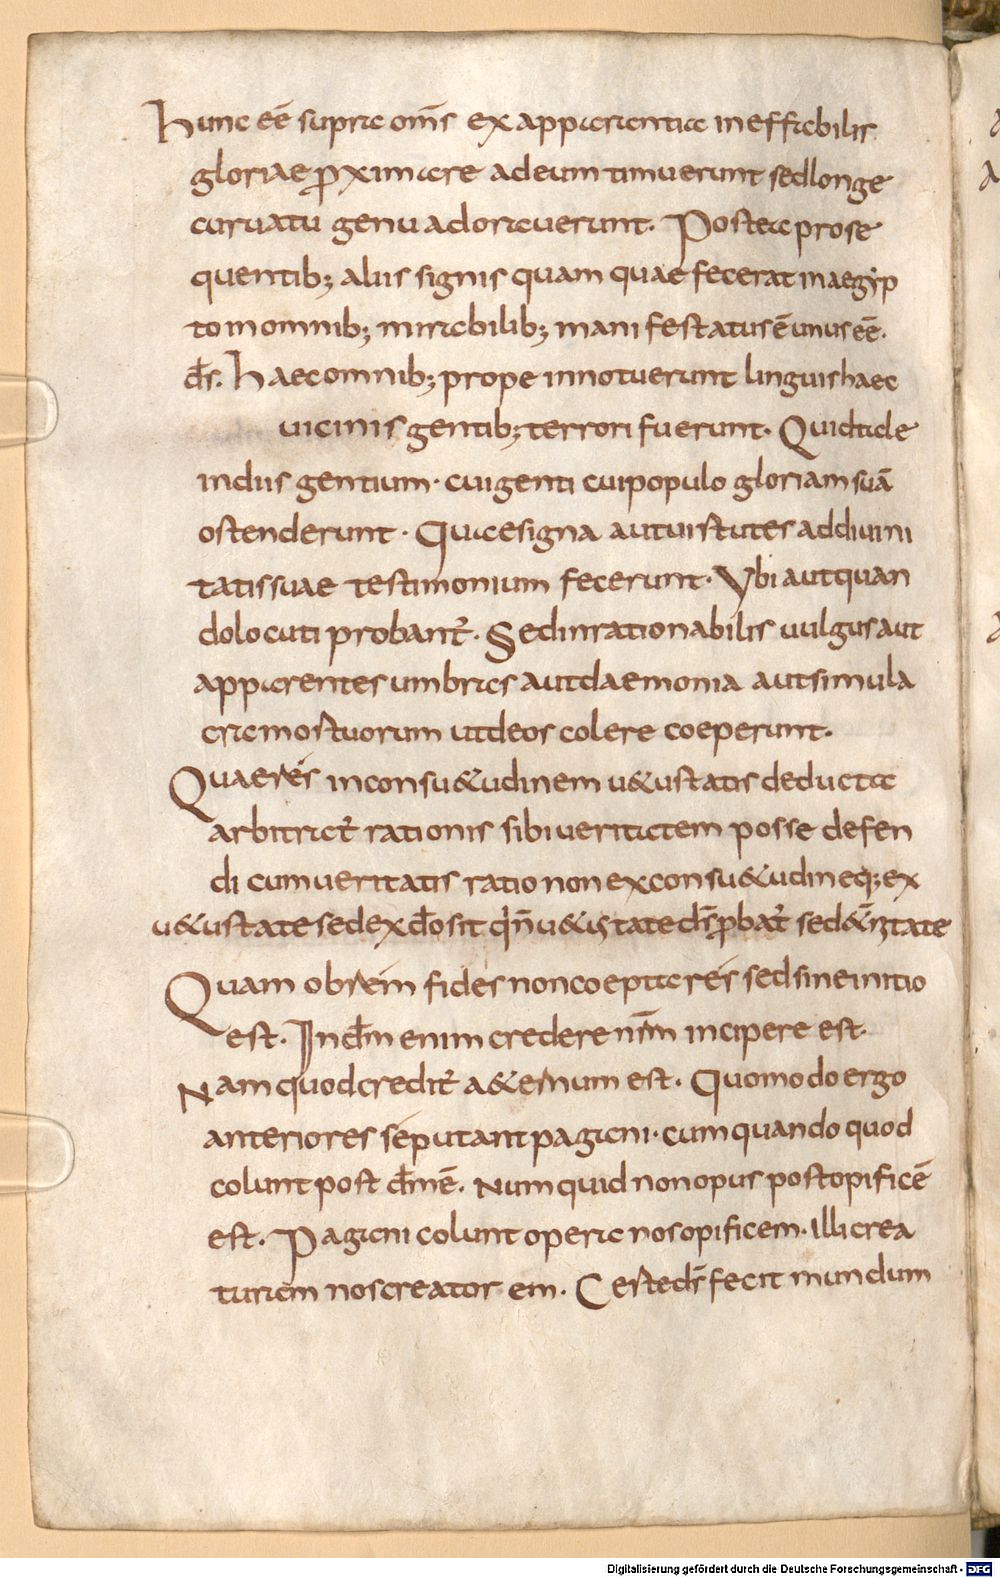 Hunc eē supra om̄s ex apparentia ineffabilis
gloriae ꝓximare adeum timuerunt sedlonge
curuatu genu adorauerunt. Postea prose
quentib; aliis signis quam quae fecerat inaegyp
to inomnib; mirabilib; manifestatus ē unus eē.
d̄s. Haec omnib; prope innotuerunt linguis haec
uicinis gentib; terrori fuerunt. Quid tale
indiis gentium. cui genti cui populo gloriam suā
ostenderunt. Quae signa aut uirtutes addiuini
tatis suae testimonium fecerunt. Vbi aut quan
do locuti probant᷑. Sed inrationabilis uulgus aut
apparentes umbras aut daemonia aut simula
cra mortuorum ut deos colere coeperunt.
Quae res inconsu&udinem u&ustatis deducta
arbitrat᷑ rationis sibi ueritatem posse defen
di cum ueritatis ratio non ex consu&udine q; ex
u&ustate sed ex d̄o sit q̇ n̄ u&ustate d̄s ꝓbat᷑ sed &nitate
Quam obrem fides non coepta res sed sine initio
est. In d̄m enim credere nr̄m incipere est.
Nam quod credit᷑ a&ernum est. Quomodo ergo
anteriores se putant pagani. cum quando quod
colunt post d̄m ē. Numquid non opus post opificē
est. Pagani colunt opera nos opificem. Illi crea
turam nos creatorem. Certe d̄s fecit mundum
Digitalisierung gefördert durch die Deutsche Forschungsgemeinschaft - DFG